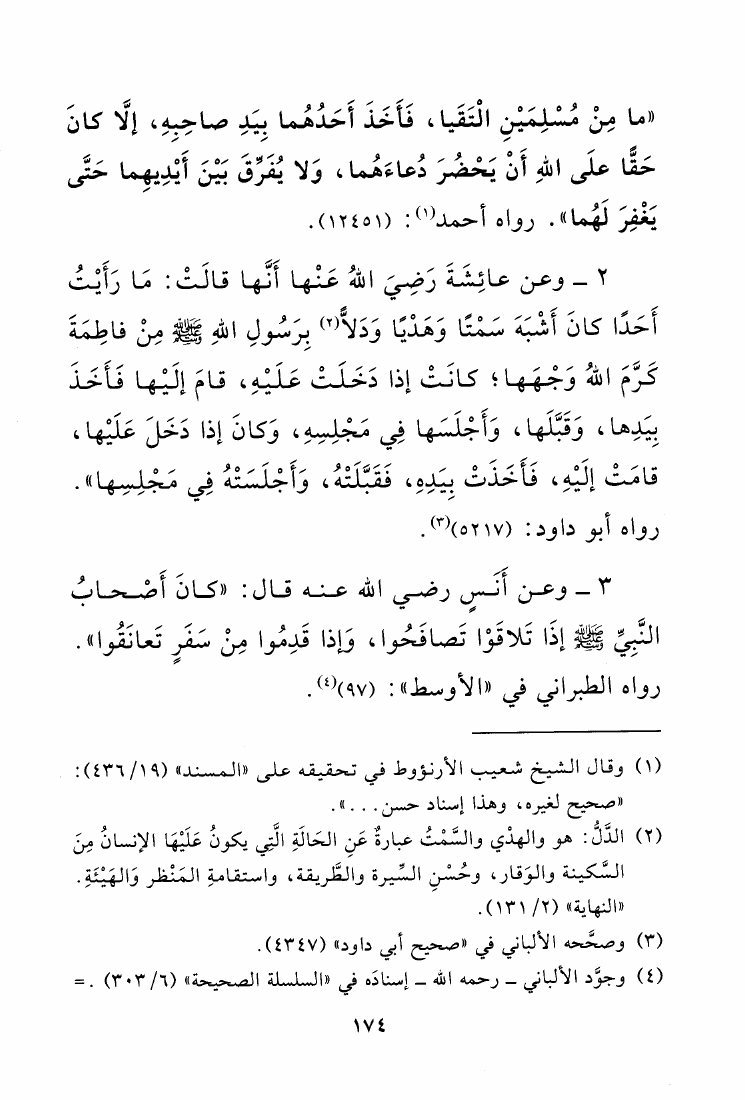 «ما مِنْ مُسْلِمَيْنِ الْتَقَيا، فَأَخَذَ أَحَدُهُما بِيَدِ صاحِبِهِ، إلَّا كانَ
حَقًّا علَى اللهِ أَنْ يَحْضُرَ دُعاءَهُما، وَلا يُفَرِّقَ بَيْنَ أَيْدِيهِما حَتَّى
يَغْفِرَ لَهُما». رواه أحمد(١): (١٢٤٥١).
٢ ـ وعن عائِشَةَ رَضِيَ اللهُ عَنْها أَنَّها قالَتْ: مَا رَأَيْتُ
أَحَدًا كانَ أَشْبَهَ سَمْتًا وَهَدْيًا وَدَلاًّ(٢) بِرَسُولِ اللهِ ﷺ مِنْ فاطِمَةَ
كَرَّمَ اللهُ وَجْهَها؛ كانَتْ إذا دَخَلَتْ عَلَيْهِ، قامَ إلَيْها فَأَخَذَ
بِيَدِها، وَقَبَّلَها، وَأَجْلَسَها فِي مَجْلِسِهِ، وَكانَ إذا دَخَلَ عَلَيْها،
قامَتْ إلَيْهِ، فَأَخَذَتْ بِيَدِهِ، فَقَبَّلَتْهُ، وَأَجْلَسَتْهُ فِي مَجْلِسِها».
رواه أبو داود: (٥٢١٧)(٣).
٣ ـ وعـن أَنَـسٍ رضـي الله عنـه قـال: «كـانَ أَصْـحـابُ
النَّبِيِّ ﷺ إذَا تَلاقَوْا تَصافَحُوا، وَإذا قَدِمُوا مِنْ سَفَرٍ تَعانَقُوا».
رواه الطبراني في «الأوسط»: (٩٧)(٤).
(١) وقال الشيخ شعيب الأرنؤوط في تحقيقه على «المسند» (١٩/ ٤٣٦):
«صحيح لغيره، وهذا إسناد حسن...».
(٢) الدَّلُّ: هو والهدْي والسَّمْتُ عبارةٌ عَنِ الحَالَةِ الَّتِي يكونُ عَلَيْهَا الإنسانُ مِنَ
السَّكينة والوَقار، وحُسْنِ السِّيرة والطَّريقة، واستقامةِ المَنْظر وَالهَيْئَةِ.
«النهاية» (٢/ ١٣١).
(٣) وصحَّحه الألباني في «صحيح أبي داود» (٤٣٤٧).
(٤) وجوَّد الألباني ـ رحمه الله ـ إسنادَه في «السلسلة الصحيحة» (٦/ ٣٠٣). =
١٧٤